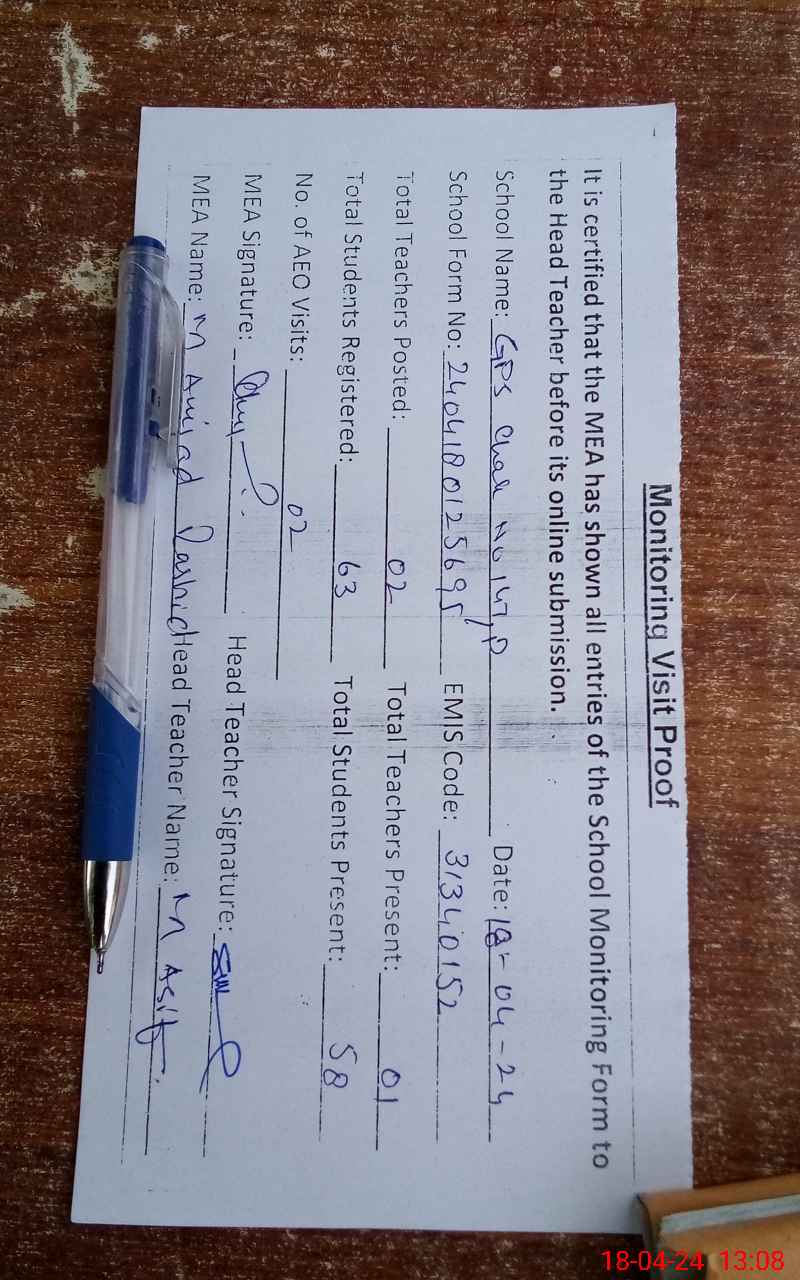 Monitoring Visit Proof
It is certified that the MEA has shown all entries of the School Monitoring Form to
the Head Teacher before its online submission.
School Name: GPS Chak No 147,P Date: 18-04-24
School Form No: 2404180125695 EMIS Code: 31340152
Total Teachers Posted: 02 Total Teachers Present: 01
Total Students Registered: 63 Total Students Present: 58
No. of AEO Visits: 02
MEA Signature: Head Teacher Signature:
MEA Name: M Amjad Rashid Head Teacher Name: M Asif
18-04-24 13:08